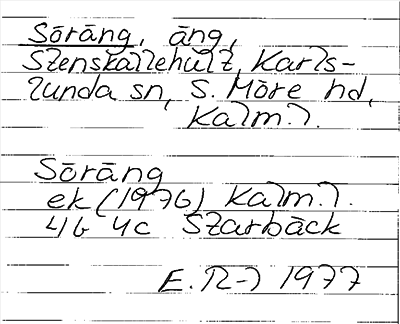 Söräng, äng,
Stenskallehult, Karls-
lunda sn, S. Möre hd,
Kalm.l.
Söräng
ek (1976) Kalm.l.
4G 4c Starbäck
E. N-l 1977